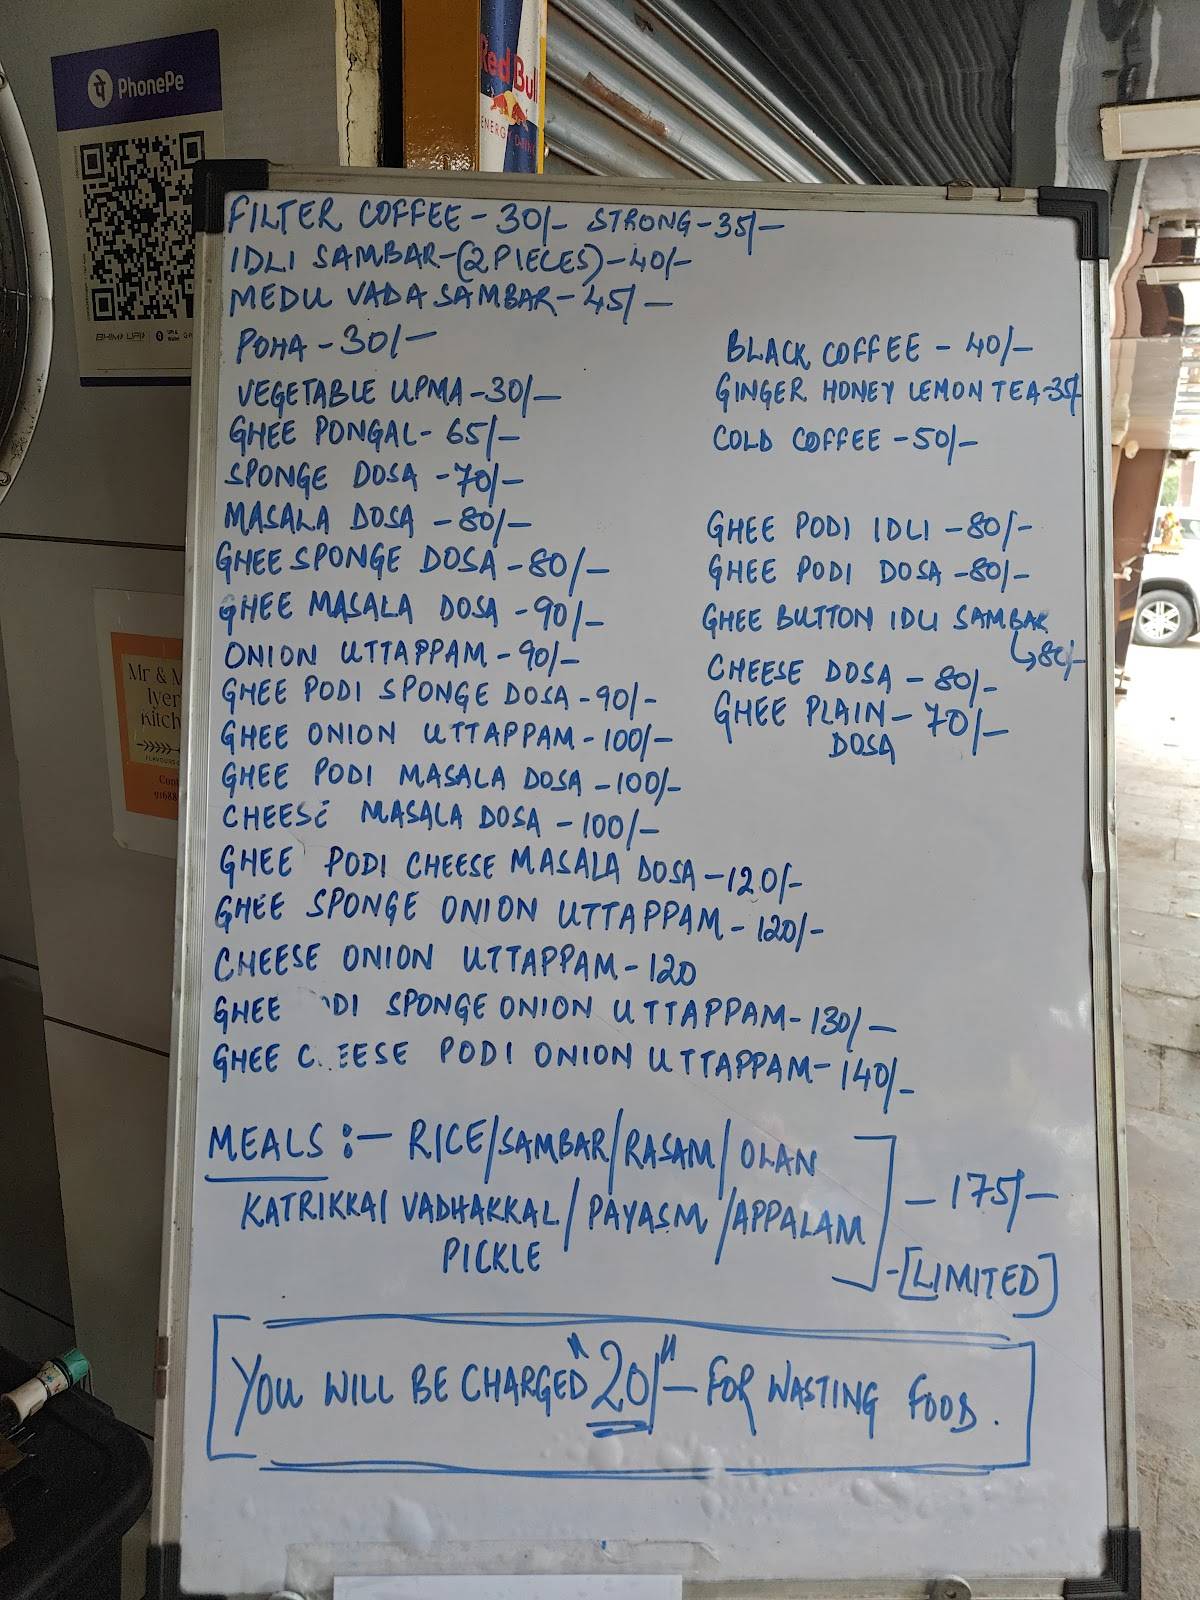 पे PhonePe
BHIM UPI
Red Bull
ENERGY DRINK
FILTER COFFEE - 30/- STRONG - 35/-
IDLI SAMBAR - (2 PIECES) - 40/-
MEDU VADA SAMBAR - 45/-
POHA - 30/-
VEGETABLE UPMA - 30/-
GHEE PONGAL - 65/-
SPONGE DOSA - 70/-
MASALA DOSA - 80/-
GHEE SPONGE DOSA - 80/-
GHEE MASALA DOSA - 90/-
ONION UTTAPPAM - 90/-
GHEE PODI SPONGE DOSA - 90/-
GHEE ONION UTTAPPAM - 100/-
GHEE PODI MASALA DOSA - 100/-
CHEESE MASALA DOSA - 100/-
GHEE PODI CHEESE MASALA DOSA - 120/-
GHEE SPONGE ONION UTTAPPAM - 120/-
CHEESE ONION UTTAPPAM - 120
GHEE ODI SPONGE ONION UTTAPPAM - 130/-
GHEE C EESE PODI ONION UTTAPPAM - 140/-
BLACK COFFEE - 40/-
GINGER HONEY LEMON TEA - 35/
COLD COFFEE - 50/-
GHEE PODI IDLI - 80/-
GHEE PODI DOSA - 80/-
GHEE BUTTON IDLI SAMBAR
↳ 80/-
CHEESE DOSA - 80/-
GHEE PLAIN - 70/-
DOSA
MEALS :- RICE/SAMBAR/RASAM/OLAN
KATRIKKAI VADHAKKAL/PAYASM/APPALAM
PICKLE
- 175/-
- [LIMITED]
YOU WILL BE CHARGED "20/-" FOR WASTING FOOD.
Mr & M
Iyer
Kitch
FLAVOURS